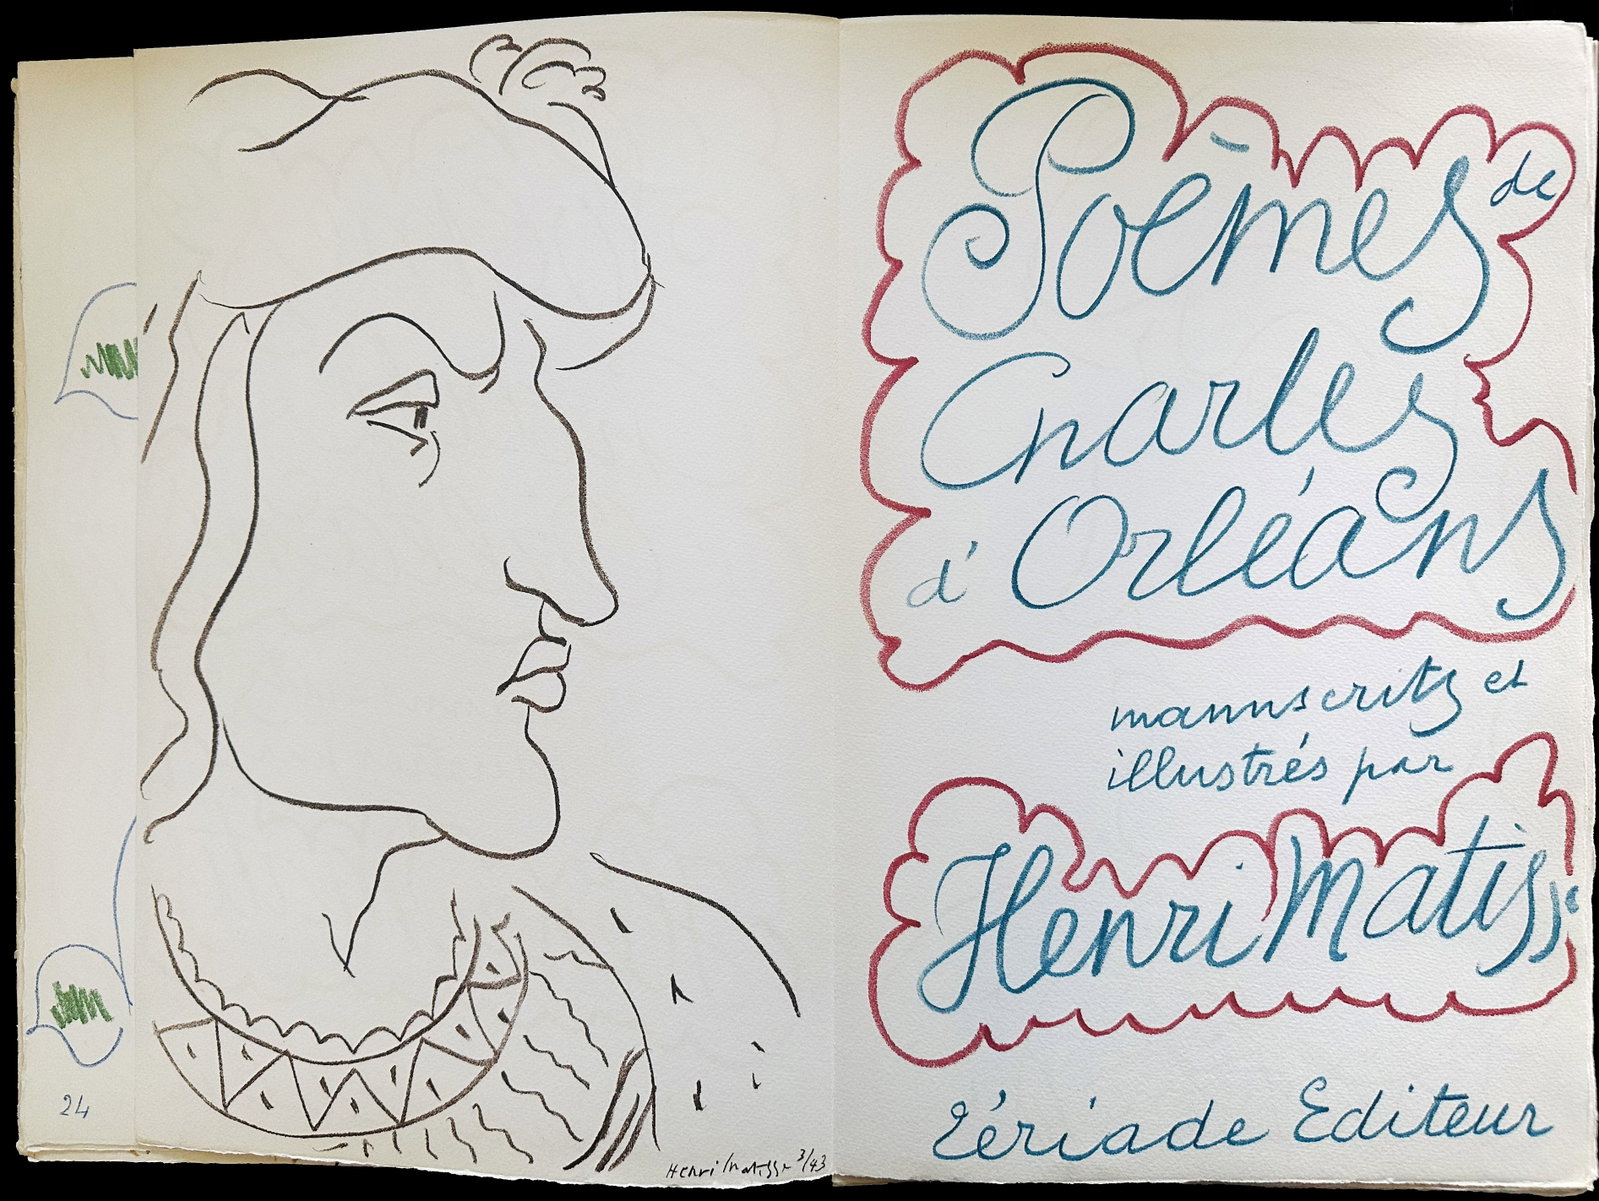 24
Henri Matisse 3/43
Poèmes de
Charles
d'Orléans
manuscrits et
illustrés par
Henri Matisse
Tériade Editeur